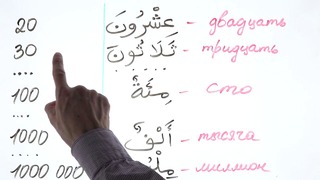 20 عِشْرُونَ - двадцать
30 ثَلَاثُونَ - тридцать
.... ....
100 مِئَةٌ - сто
.... ....
1000 أَلْفٌ - тысяча
....
1000 000 - миллион